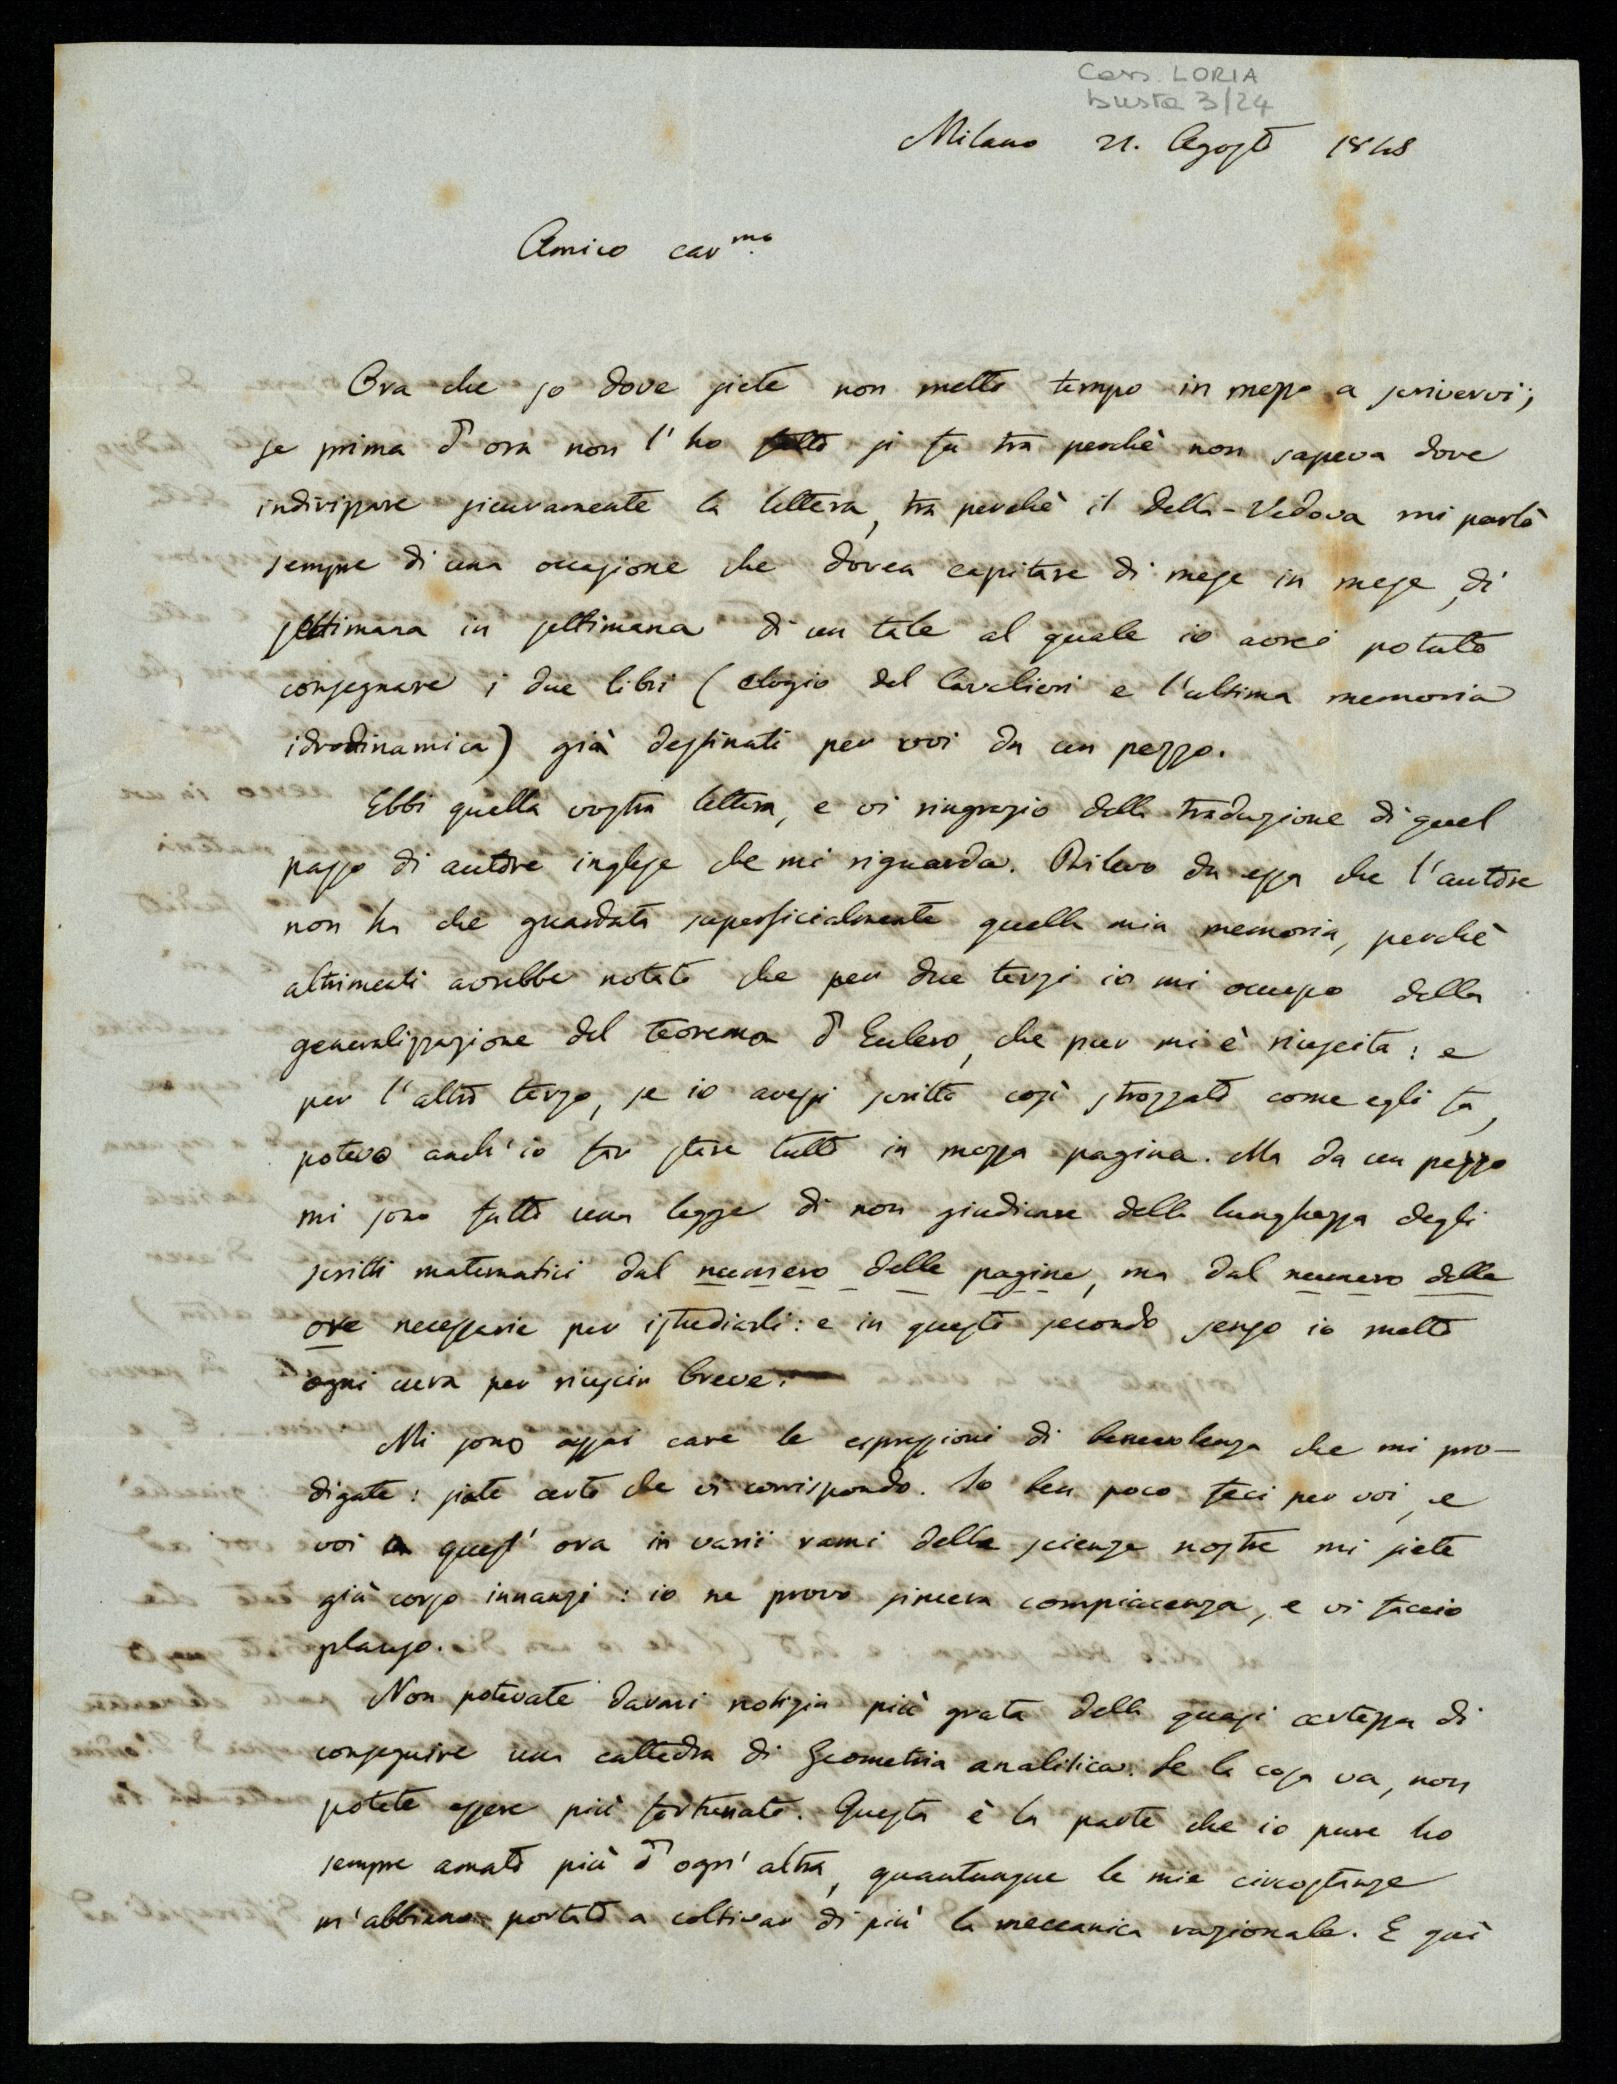 Corr. LORIA
busta 3/24
Milano 21. Agosto 1848
Amico car.mo
Ora che so dove siete non metto tempo in mezzo a scrivervi;
se prima d'ora non l'ho fatto si fu tra perchè non sapeva dove
indirizzare sicuramente la lettera, tra perchè il Della-Vedova mi parlò
sempre di una occasione che dovea capitare di mese in mese, di
settimana in settimana di un tale al quale io avrei potuto
consegnare i due libri (elogio del Cavalieri e l'ultima memoria
idrodinamica) già destinati per voi da un pezzo.
Ebbi quella vostra lettera, e vi ringrazio della traduzione di quel
passo di autore inglese che mi riguarda. Rilevo da essa che l'autore
non ha che guardata superficialmente quella mia memoria, perchè
altrimenti avrebbe notato che per due terzi io mi occupo della
generalizzazione del teorema d'Eulero, che pur mi è riuscita: e
per l'altro terzo, se io avessi scritto così strozzato come egli fa,
potevo anch'io far stare tutto in mezza pagina. Ma da un pezzo
mi sono fatto una legge di non giudicare della lunghezza degli
scritti matematici dal numero delle pagine, ma dal numero delle
ore necessarie per istudiarli: e in questo secondo senso io metto
ogni cura per riuscir breve.
Mi sono assai care le espressioni di benevolenza che mi pro-
digate: siate certo che vi corrispondo. Io ben poco feci per voi, e
voi a quest'ora in varii rami della scienza nostra mi siete
già corso innanzi: io ne provo sincera compiacenza, e vi faccio
plauso.
Non potevate darmi notizia più grata della quasi certezza di
conseguire una cattedra di Geometria analitica. Se la cosa va, non
potete essere più fortunato. Questa è la parte che io pure ho
sempre amato più d'ogn'altra, quantunque le mie circostanze
m'abbiano portato a coltivar di più la meccanica razionale. E quì